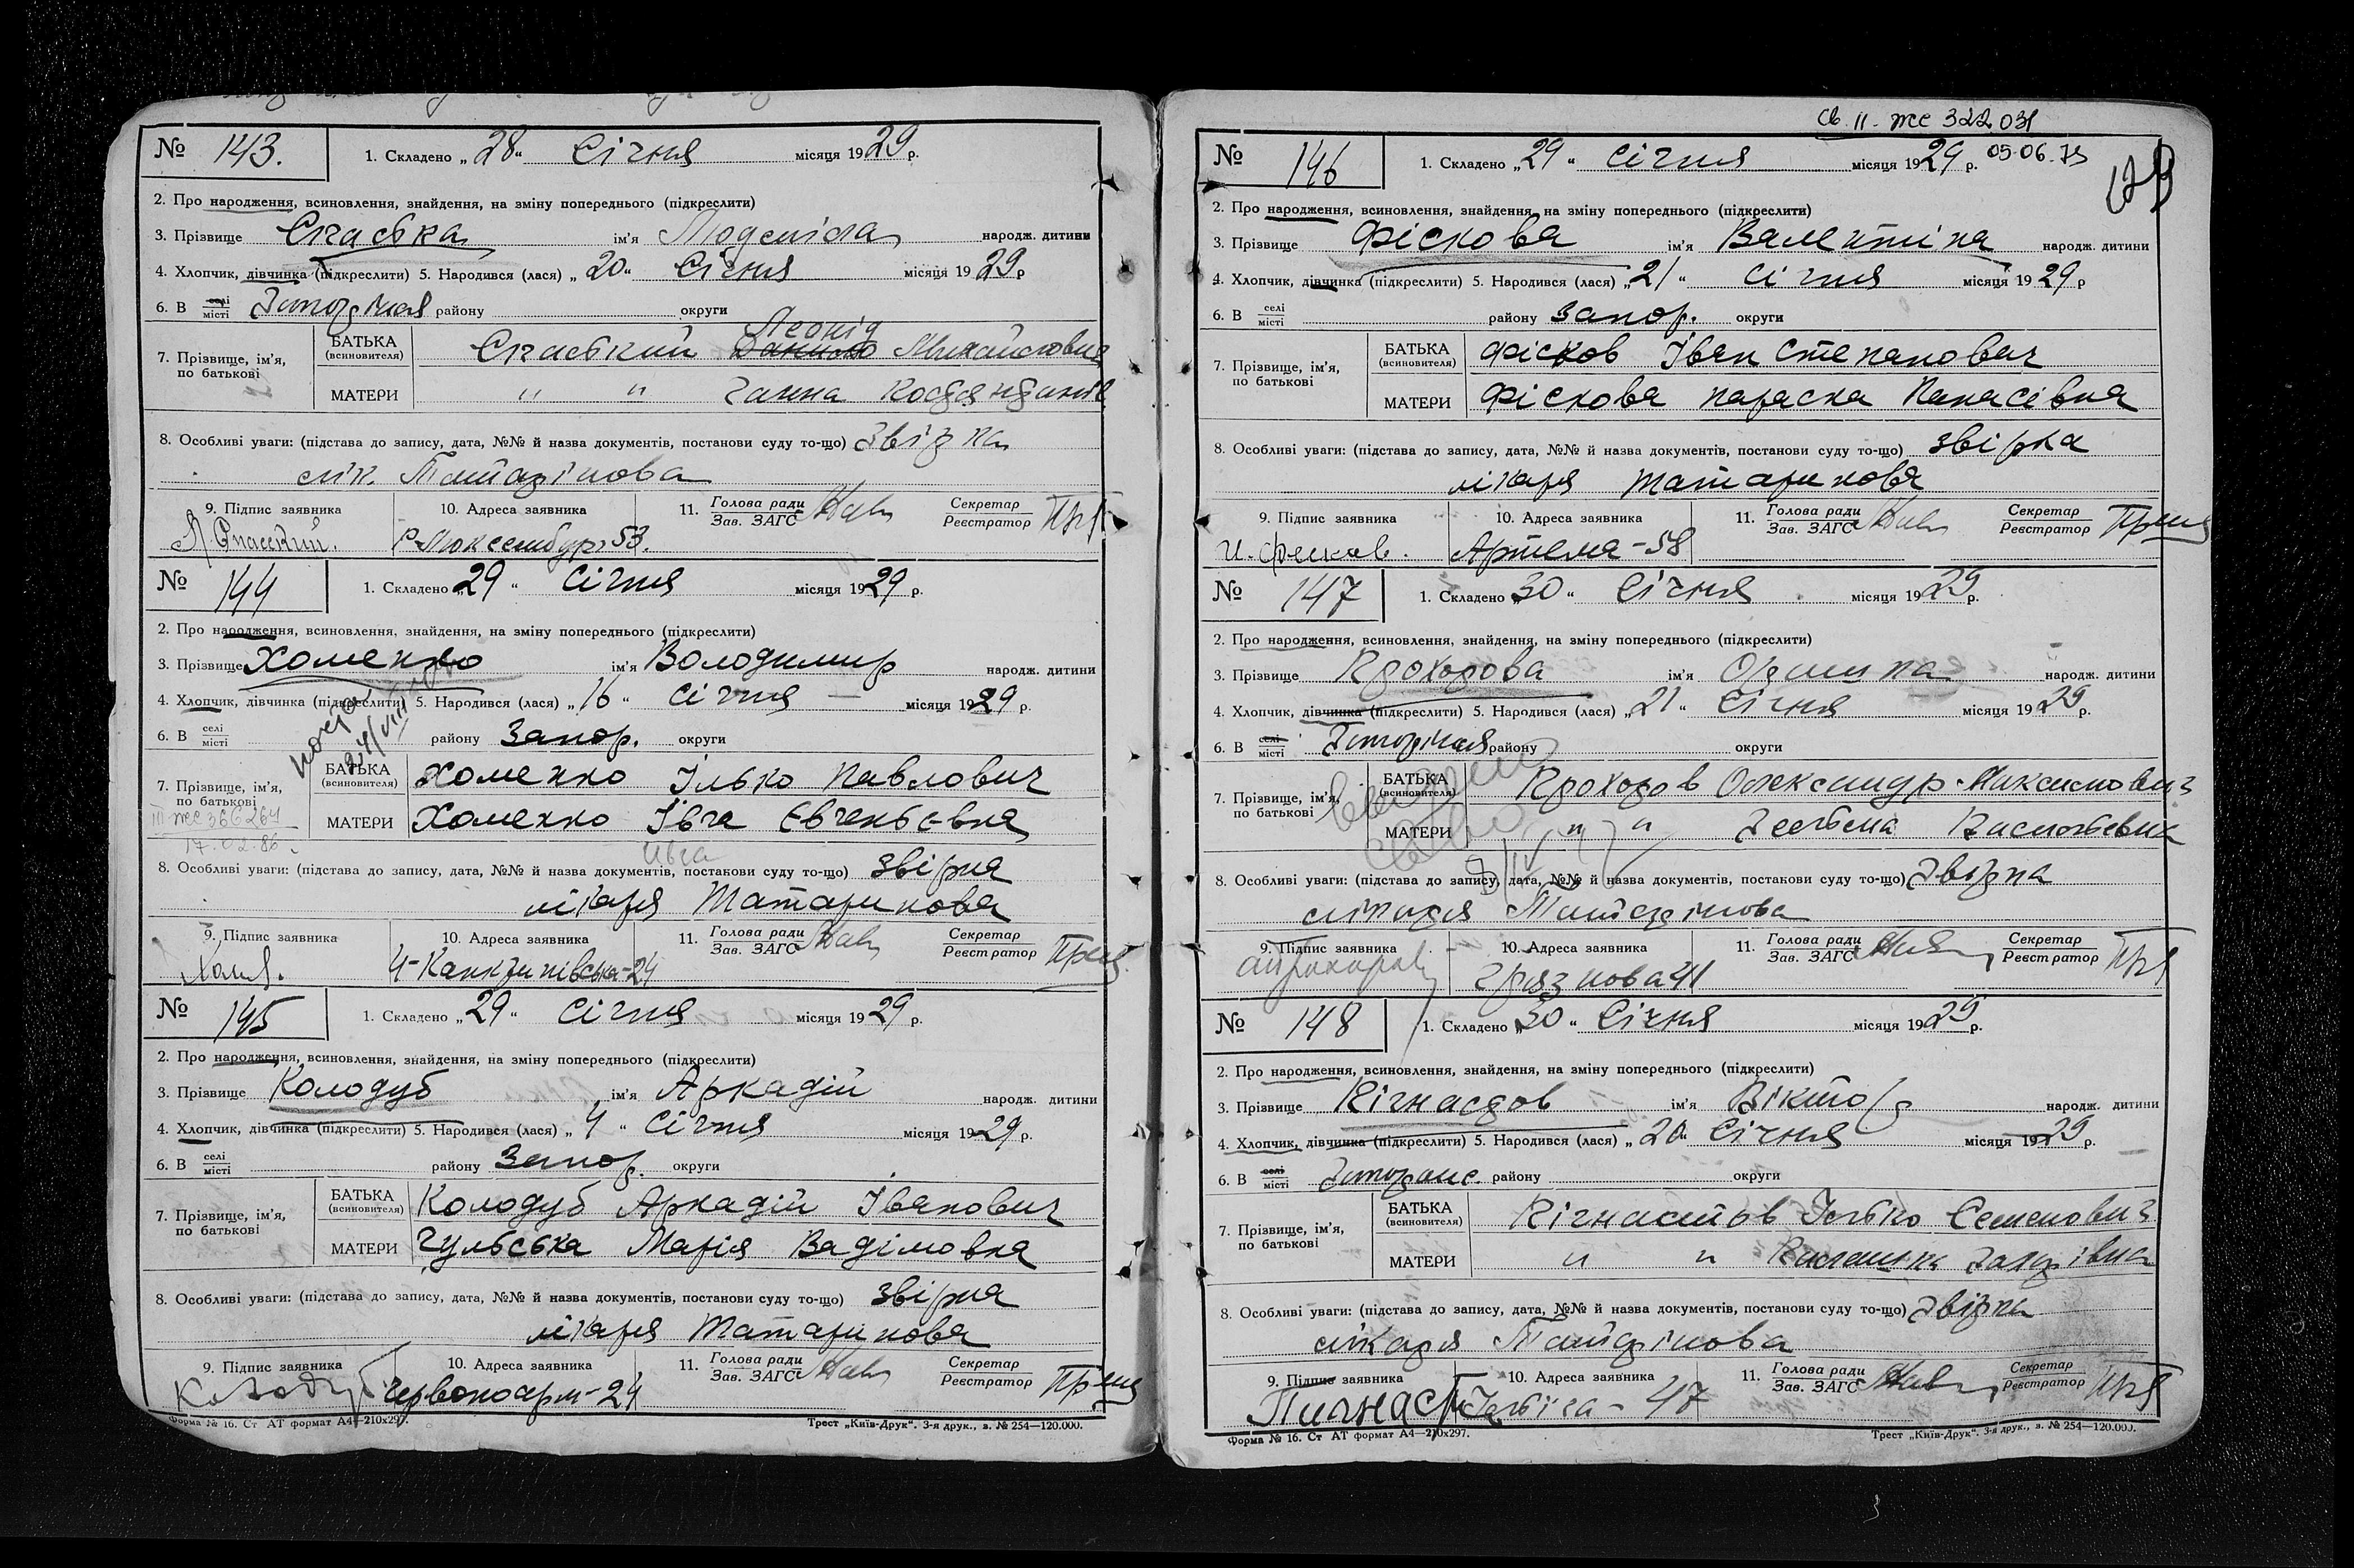 № 143. 1. Складено „28“ Січня місяця 1929 р.
2. Про народження, всиновлення, знайдення, на зміну попереднього (підкреслити)
3. Прізвище Спаська ім'я народж. дитини
4. Хлопчик, дівчинка (підкреслити) 5. Народився (лася) „20“ Січня місяця 1929 р
6. В селі місті району округи
7. Прізвище, ім'я, по батькові
БАТЬКА (всиновителя) Спаський Данило Леонід Михайлович
МАТЕРИ " " Ганна
8. Особливі уваги: (підстава до запису, дата, №№ й назва документів, постанови суду то-що) Звірка
лік. Татарінова
9. Підпис заявника 10. Адреса заявника 11. Голова ради Зав. ЗАГС Секретар Реєстратор
Л Спасский. Р-Люксембург 53.
№ 144 1. Складено „29“ Січня місяця 1929 р.
2. Про народження, всиновлення, знайдення, на зміну попереднього (підкреслити)
3. Прізвище Хоменко ім'я Володимир народж. дитини
4. Хлопчик, дівчинка (підкреслити) 5. Народився (лася) „16“ Січня місяця 1929 р.
6. В селі місті району Запор. округи
7. Прізвище, ім'я, по батькові
III ЖС 366264
17.02.86
БАТЬКА (всиновителя) Хоменко Ілько Павлович
МАТЕРИ Хоменко Івга Євгеньєвна
8. Особливі уваги: (підстава до запису, дата, №№ й назва документів, постанови суду то-що) звірка
лікаря Татаринова
9. Підпис заявника 10. Адреса заявника 11. Голова ради Зав. ЗАГС Секретар Реєстратор
№ 145 1. Складено „29“ Січня місяця 1929 р.
2. Про народження, всиновлення, знайдення, на зміну попереднього (підкреслити)
3. Прізвище Колодуб ім'я Аркадій народж. дитини
4. Хлопчик, дівчинка (підкреслити) 5. Народився (лася) „4“ Січня місяця 1929 р.
6. В селі місті району Запор. округи
7. Прізвище, ім'я, по батькові
БАТЬКА (всиновителя) Колодуб Аркадій Іванович
МАТЕРИ Гульська Марія Вадімовна
8. Особливі уваги: (підстава до запису, дата, №№ й назва документів, постанови суду то-що) звірка
лікаря Татаринова
9. Підпис заявника 10. Адреса заявника 11. Голова ради Зав. ЗАГС Секретар Реєстратор
Колодуб Червоноарм-24
Форма № 16. Ст АТ формат А4—210х297. Трест „Київ-Друк“. 3-я друк., з. № 254—120.000.
Св. II - ЖС 322 031
05.06.75
№ 146 1. Складено „29“ Січня місяця 1929 р.
2. Про народження, всиновлення, знайдення, на зміну попереднього (підкреслити)
3. Прізвище Фіскова ім'я Валентіна народж. дитини
4. Хлопчик, дівчинка (підкреслити) 5. Народився (лася) „21“ Січня місяця 1929 р
6. В селі місті району Запор. округи
7. Прізвище, ім'я, по батькові
БАТЬКА (всиновителя) Фісков Іван Степанович
МАТЕРИ Фіскова Параска Панасівна
8. Особливі уваги: (підстава до запису, дата, №№ й назва документів, постанови суду то-що) звірка
лікаря Татаринова
9. Підпис заявника 10. Адреса заявника 11. Голова ради Зав. ЗАГС Секретар Реєстратор
И. Фесков. Артема-58
№ 147 1. Складено „30“ Січня місяця 1929 р.
2. Про народження, всиновлення, знайдення, на зміну попереднього (підкреслити)
3. Прізвище Прохорова ім'я Орина народж. дитини
4. Хлопчик, дівчинка (підкреслити) 5. Народився (лася) „21“ Січня місяця 1929 р.
6. В селі місті району округи
7. Прізвище, ім'я, по батькові
БАТЬКА (всиновителя) Прохоров Олександр Максимович
МАТЕРИ " "
8. Особливі уваги: (підстава до запису, дата, №№ й назва документів, постанови суду то-що) Звірка
лікаря Татарінова
9. Підпис заявника 10. Адреса заявника 11. Голова ради Зав. ЗАГС Секретар Реєстратор
Грязнова 41
№ 148 1. Складено „30“ Січня місяця 1929 р.
2. Про народження, всиновлення, знайдення, на зміну попереднього (підкреслити)
3. Прізвище Пігнастов ім'я Віктор народж. дитини
4. Хлопчик, дівчинка (підкреслити) 5. Народився (лася) „20“ Січня місяця 1929 р.
6. В селі місті району округи
7. Прізвище, ім'я, по батькові
БАТЬКА (всиновителя) Пігнастов Ілько Семенович
МАТЕРИ " "
8. Особливі уваги: (підстава до запису, дата, №№ й назва документів, постанови суду то-що) Звірка
лікаря Татарінова
9. Підпис заявника 10. Адреса заявника 11. Голова ради Зав. ЗАГС Секретар Реєстратор
Форма № 16. Ст АТ формат А4—210х297. Трест „Київ-Друк“. 3-я друк., з. № 254—120.000.